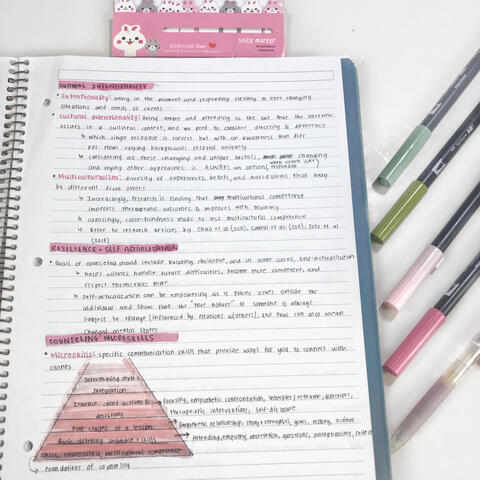 stick marker
CULTURAL INTENTIONALITY
• Intentionality: being in the moment and responding flexibly to ever changing
situations and needs of clients
• Cultural intentionality: being aware and attending to the fact that the interview
occurs in a cultural context, and we need to consider diversity & difference
↳ which single response is correct but with an awareness that diff
ppl from varying backgrounds respond uniquely
↳ considering all these changing and unique factors, changing
and trying other approaches is ALWAYS an option when client isn't responsive
• Multiculturalism: diversity of experiences, beliefs, and world views that may
be different from others
↳ Increasingly, research is finding that multicultural competence
improves therapeutic outcomes & improves with training
↳ opposingly, color-blindness leads to less multicultural competence
↳ Refer to research articles by Chao et al (2011), Cabral et al (2011), Soto et al
(2018)
RESILIENCE + SELF ACTUALIZATION
• Goals of counseling should include building resilience, and in some cases, self-actualization
↳ helps clients handle future difficulties, become more competent, and
respect themselves more
↳ Self-actualization can be empowering as it places values outside the
individual and show that the "true nature" of someone is always
subject to change (influenced by relations w/others), and thus can also mean
changed mental states
COUNSELING MICROSKILLS
• Microskills: specific communication skills that provide ways for you to connect with
clients
Determining style +
Integration
Influence client actions &
decisions
→ Focusing, empathetic confrontation, interpret/reframe, directives,
therapeutic interventions, self-disclosure
Five stages of a session
→ Empathetic relationship, story + strengths, goals, restory, action
Basic listening sequence + skills
→ Attending, empathy, observation, questions, paraphrasing,
Ethics, neuroscience, multicultural competence
↳ Foundations of counseling